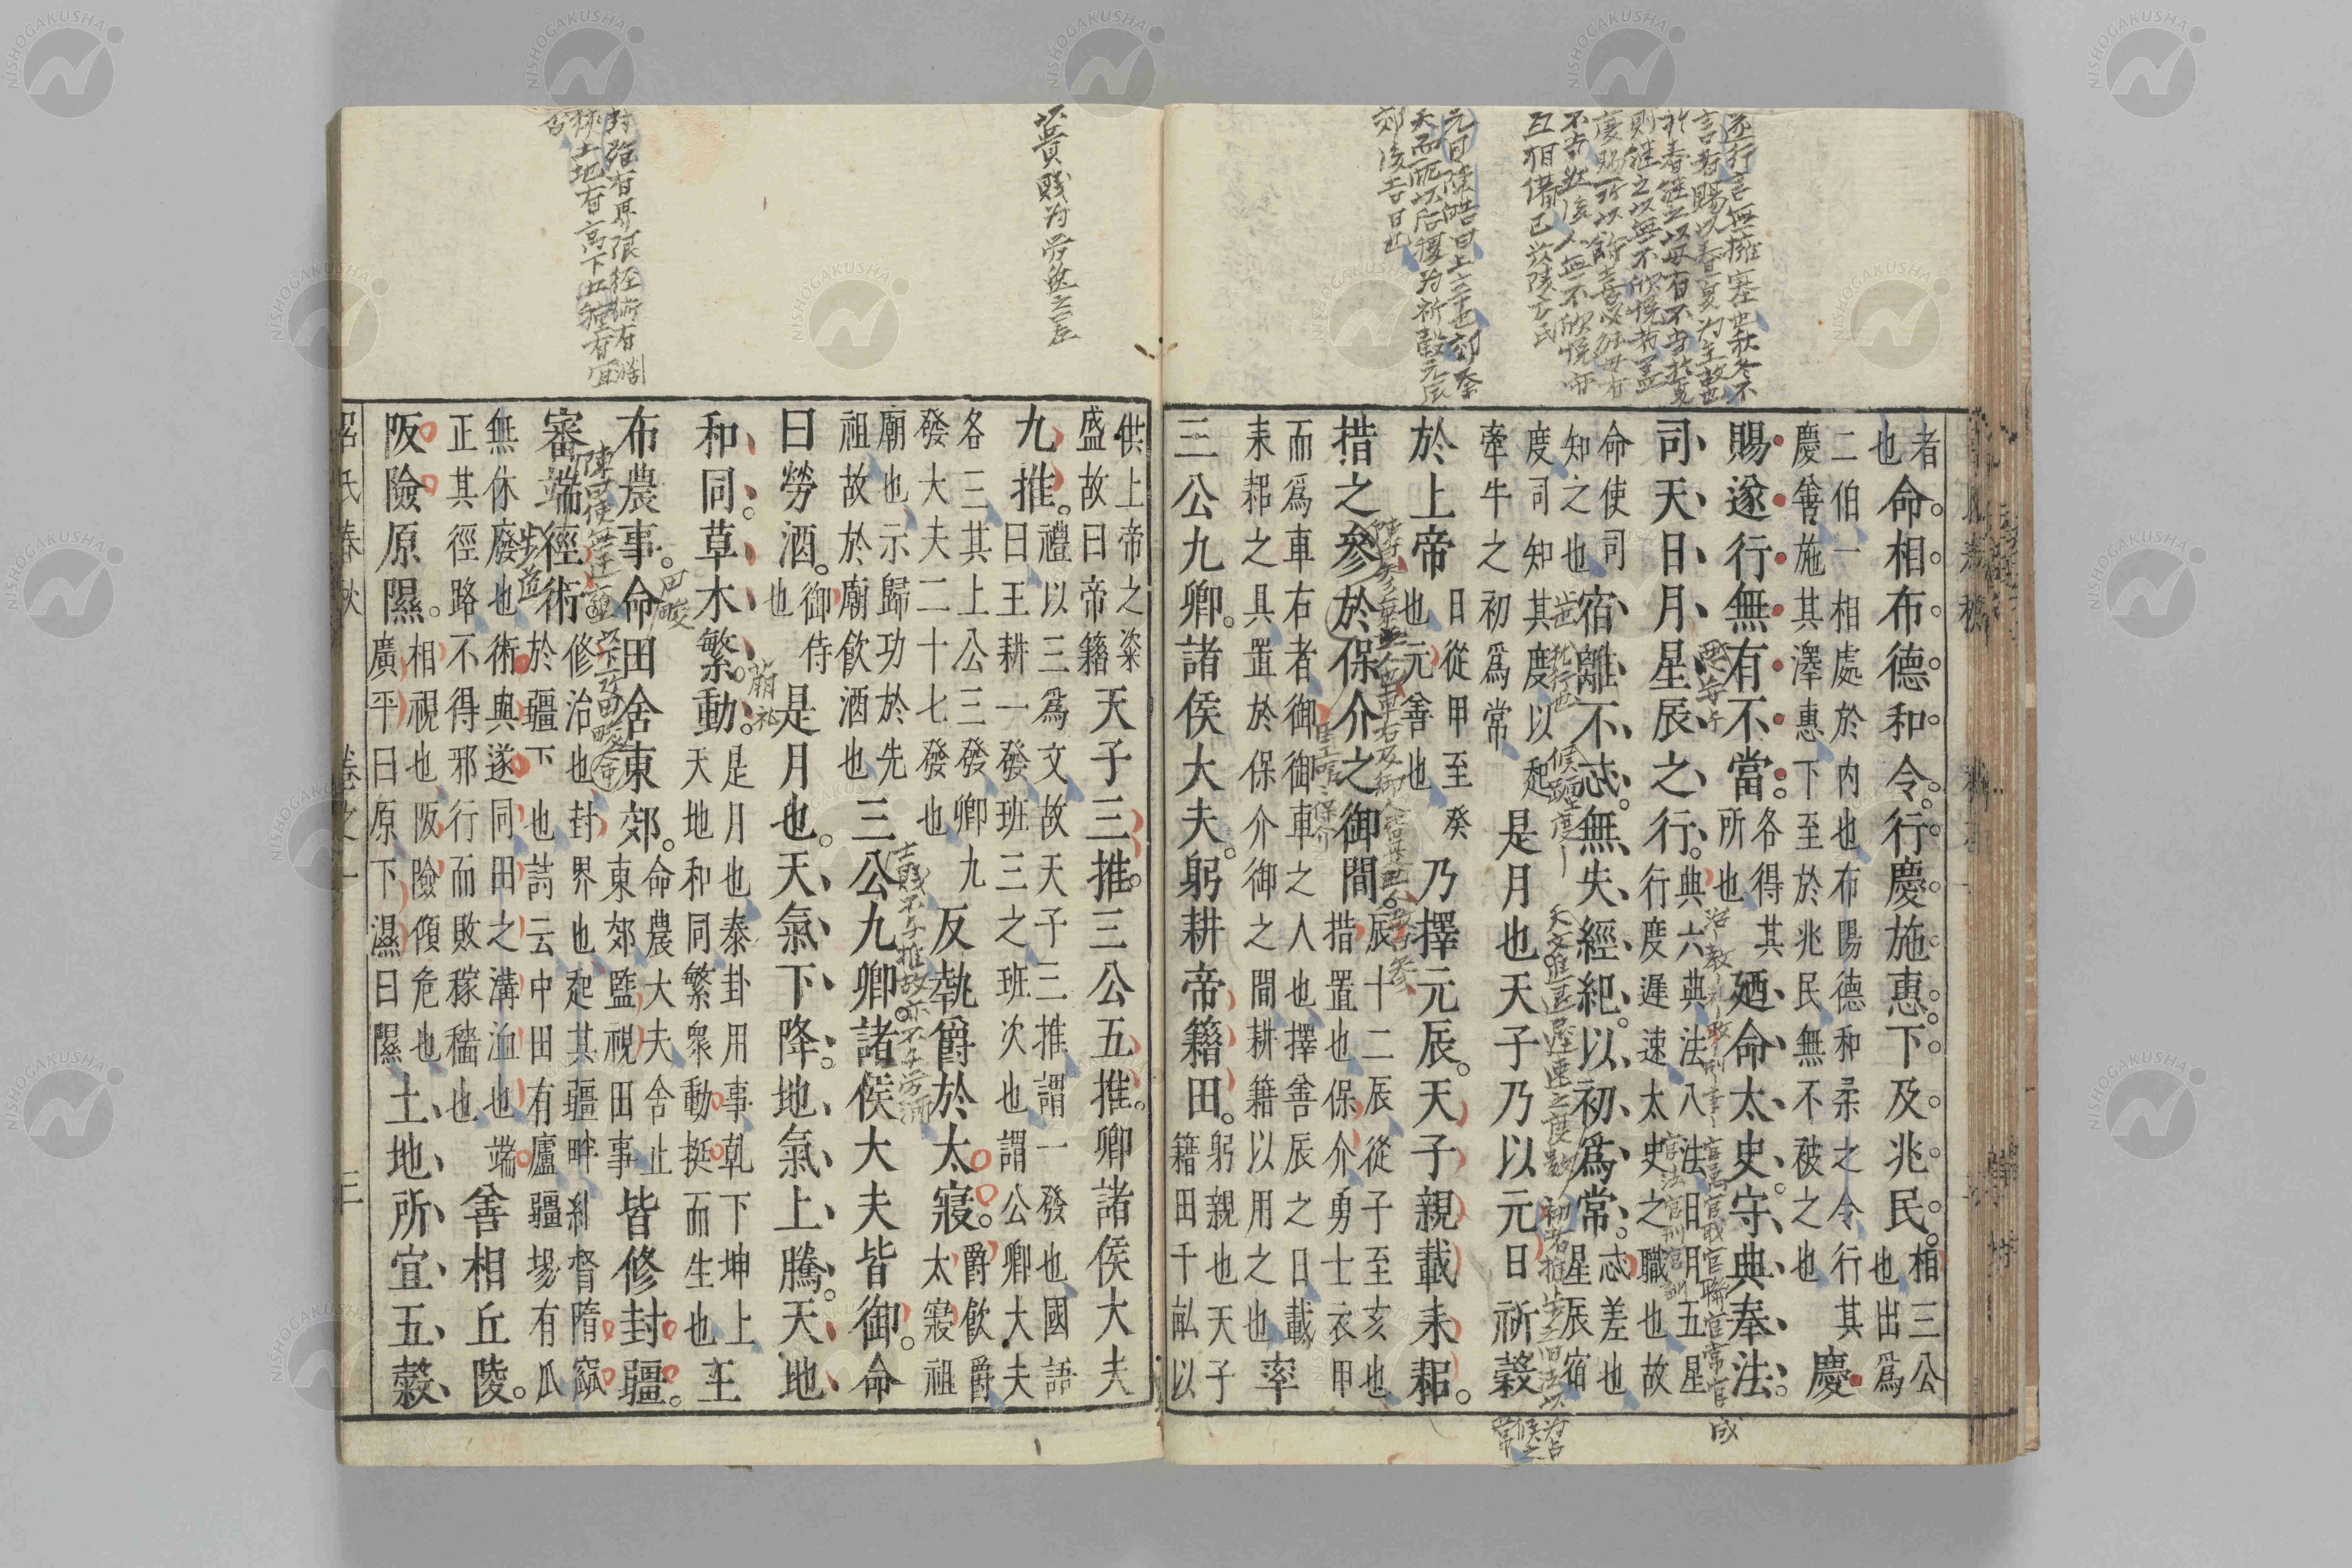 遂行言無擁塞也秋冬不
言者賜以春夏为主故也
元日陳皓曰上辛也郊祭
天而配以后稷为祈穀元辰
郊後吉日也
者
也
命相布德和令行慶施惠下及兆民
相三公
也出爲
二伯一相處於内也布陽德和柔之令行其
慶善施其澤惠下至於兆民無不被之也
慶
賜遂行無有不當
各得其
所也
廼命太史守典奉法
司天日月星辰之行
典六典法八法日月五星
行度遲速太史之職也故
命使司
知之也
宿離不忒無失經紀以初爲常
忒差也
星辰宿
度司知其度以起
牽牛之初爲常
是月也天子乃以元日祈穀
於上帝
日從甲至癸
也元善也
乃擇元辰天子親載耒耜
措之參於保介之御間
辰十二辰從子至亥也
措置也保介勇士衣甲
而爲車右者御御車之人也擇善辰之日載
耒耜之具置於保介御之間耕籍以用之也
率
三公九卿諸侯大夫躬耕帝籍田
躬親也天子
籍田千畝以
以貴賤为労佚之差
封疆有界限徑術有濶
狹土地有高下五種有宜
否
供上帝之粢
盛故曰帝籍
天子三推三公五推卿諸侯大夫
九推
禮以三爲文故天子三推謂一發也國語
曰王耕一發班三之班次也謂公卿大夫
各三其上公三發卿九
發大夫二十七發也
反執爵於太寢
爵飲爵
太寢祖
廟也示歸功於先
祖故於廟飲酒也
三公九卿諸侯大夫皆御命
曰勞酒
御侍
也
是月也天氣下降地氣上騰天地
和同草木繁動
是月也泰卦用事乾下坤上
天地和同繁衆動挺而生也
王
布農事命田舍東郊
命農大夫舍止
東郊監視田事
皆修封疆
審端徑術
修治也封界也起其疆畔糾督隋窳
於疆下也詩云中田有廬疆埸有瓜
無休廢也術典遂同田之溝洫也端
正其徑路不得邪行而敗稼穡也
善相丘陵
阪險原隰
相視也阪險傾危也
廣平曰原下濕曰隰
土地所宜五穀
呂氏春秋 卷之一 三
NISHOGAKUSHA